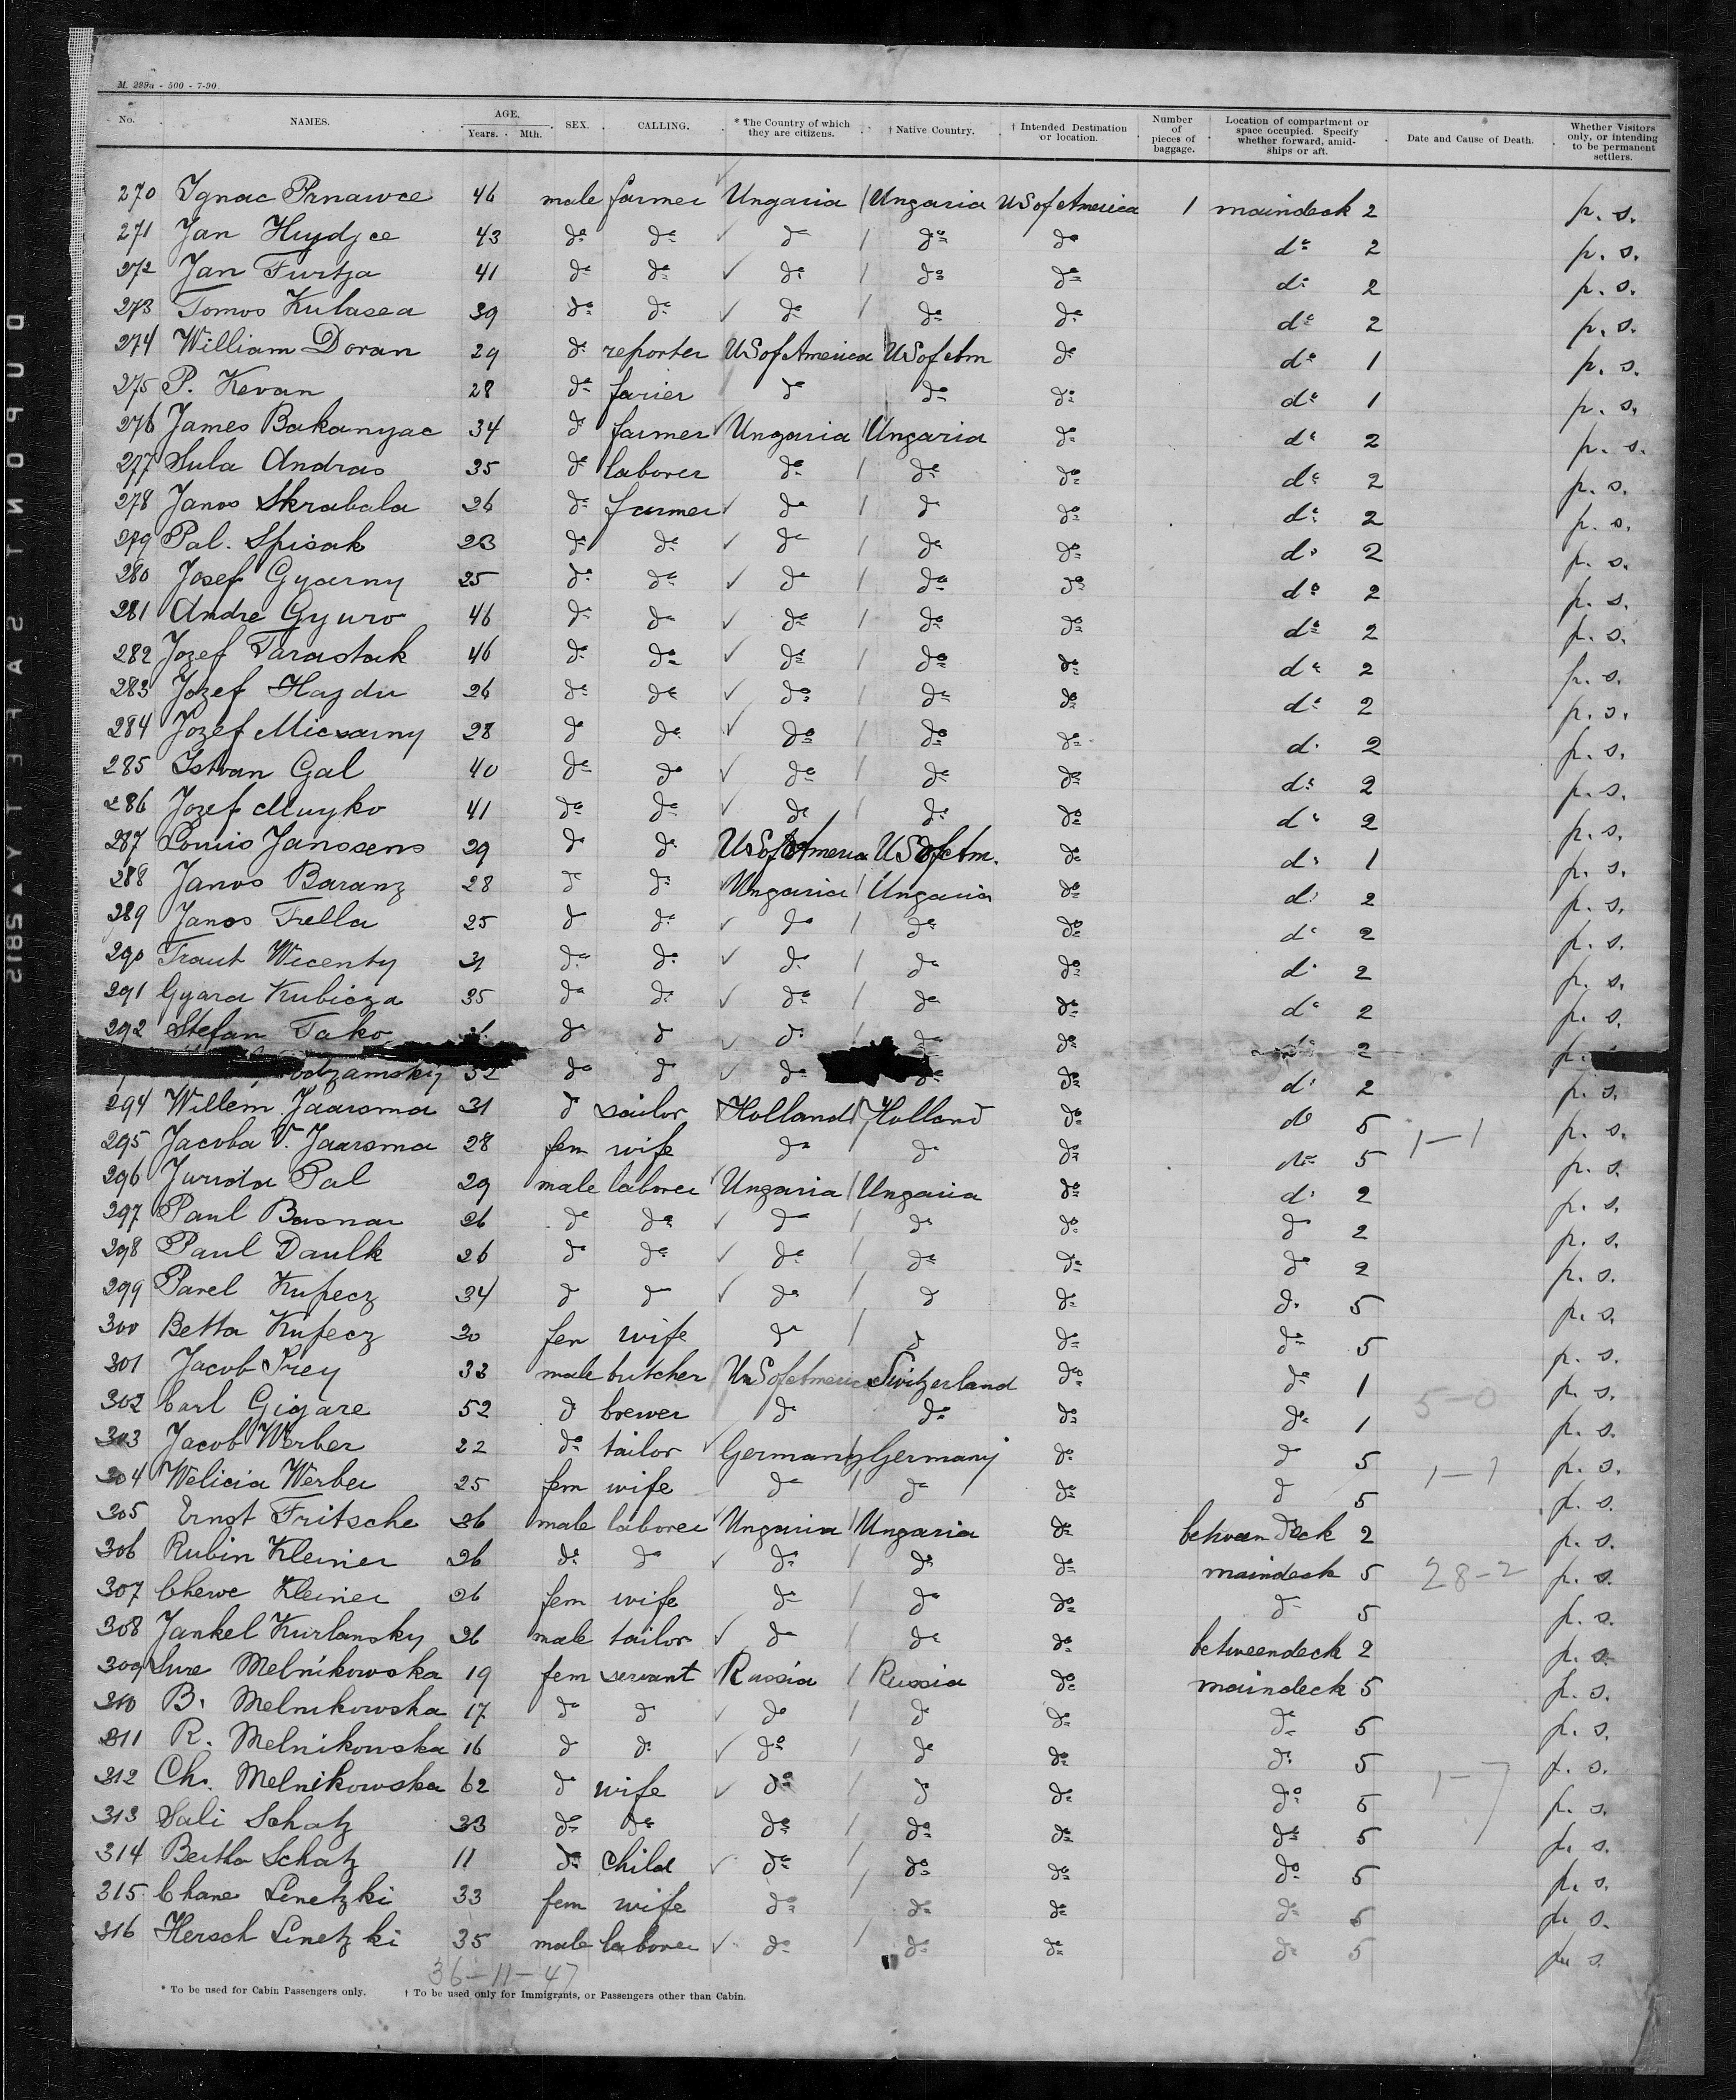 M. 289a - 500 - 7-90
No. NAMES. AGE. Years. Mth. SEX. CALLING. * The Country of which they are citizens. † Native Country. † Intended Destination or location. Number of pieces of baggage. Location of compartment or space occupied. Specify whether forward, amidships or aft. Date and Cause of Death. Whether Visitors only, or intending to be permanent settlers.
270 Ignac Prnawce 46 male farmer Ungaria Ungaria US of America 1 maindeck 2 p. s.
271 Jan Hudjce 43 do do do do do do 2 p. s.
272 Jan Furtza 41 do do do do do do 2 p. s.
273 Tomos Kulasea 39 do do do do do do 2 p. s.
274 William Doran 29 do reporter US of America US of Am do do 1 p. s.
275 P. Kevan 28 do farier do do do do 1 p. s.
276 James Bakanyac 34 do farmer Ungaria Ungaria do do 2 p. s.
277 Sula Andras 35 do laborer do do do do 2 p. s.
278 Janos Skrabala 26 do farmer do do do do 2 p. s.
279 Pal. Spisak 23 do do do do do do 2 p. s.
280 Josef Gyarny 25 do do do do do do 2 p. s.
281 Andre Gyuro 46 do do do do do do 2 p. s.
282 Jozef Tarastak 46 do do do do do do 2 p. s.
283 Jozef Hajdu 26 do do do do do do 2 p. s.
284 Jozef Micsarny 28 do do do do do do 2 p. s.
285 Istvan Gal 40 do do do do do do 2 p. s.
286 Jozef Muyko 41 do do do do do do 2 p. s.
287 Louis Janssens 29 do do US of America US of Am. do do 1 p. s.
288 Janos Baranz 28 do do Ungaria Ungaria do do 2 p. s.
289 Janos Trella 25 do do do do do do 2 p. s.
290 Traut Wicenty 31 do do do do do do 2 p. s.
291 Gyara Kubicza 35 do do do do do do 2 p. s.
292 Stefan Tako do do do do do do 2 p.
52 do do do do do do 2 p. s.
294 Willem Jaarsma 31 do sailor Holland Holland do do 5 p. s.
295 Jacoba V. Jaarsma 28 fem wife do do do do 5 1-1 p. s.
296 Jurida Pal 29 male laborer Ungaria Ungaria do do 2 p. s.
297 Paul Basnar 26 do do do do do do 2 p. s.
298 Paul Daulk 26 do do do do do do 2 p. s.
299 Pavel Kupecz 34 do do do do do do 5 p. s.
300 Betta Kupecz 30 fem wife do do do do 5 p. s.
301 Jacob Frey 33 male butcher Un S of America Switzerland do do 1 p. s.
302 Carl Gigare 52 do brewer do do do do 1 5-0 p. s.
303 Jacob Werber 22 do tailor Germany Germany do do 5 p. s.
304 Welicia Werber 25 fem wife do do do do 5 1-1 p. s.
305 Ernst Fritsche 36 male laborer Ungaria Ungaria do between deck 2 p. s.
306 Rubin Kleiner 26 do do do do do maindeck 5 28-2 p. s.
307 Cherve Kleiner 26 fem wife do do do do 5 p. s.
308 Jankel Kurlansky 26 male tailor do do do betweendeck 2 p. s.
309 Sure Melnikowska 19 fem servant Russia Russia do maindeck 5 p. s.
310 B. Melnikowska 17 do do do do do do 5 p. s.
311 R. Melnikowska 16 do do do do do do 5 p. s.
312 Ch. Melnikowska 62 do wife do do do do 5 1-7 p. s.
313 Sali Schatz 33 do do do do do do 5 p. s.
314 Bertha Schatz 11 do child do do do do 5 p. s.
315 Chane Linetzki 33 fem wife do do do do 5 p. s.
316 Hersch Linetzki 35 male laborer do do do do 5 p. s.
36-11-47
* To be used for Cabin Passengers only. † To be used only for Immigrants, or Passengers other than Cabin.
DUPONT SAFETY